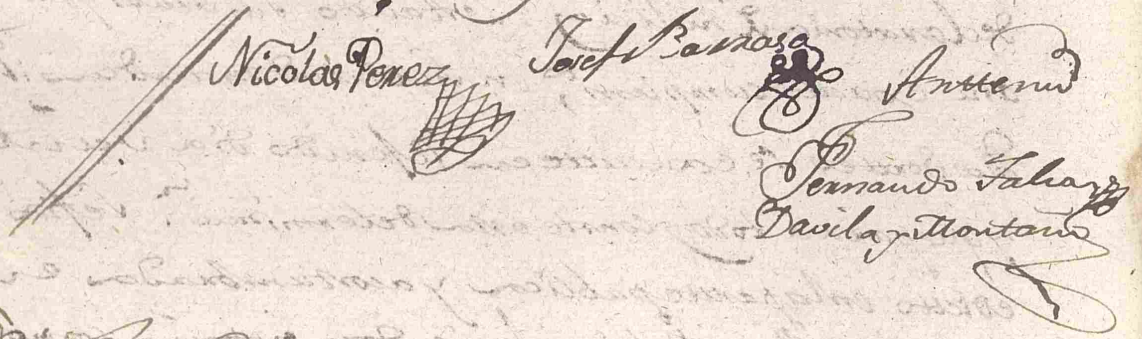 Nicolas Perez
Josef Barrasa
Antte mi
Fernando
Davila y Montaño